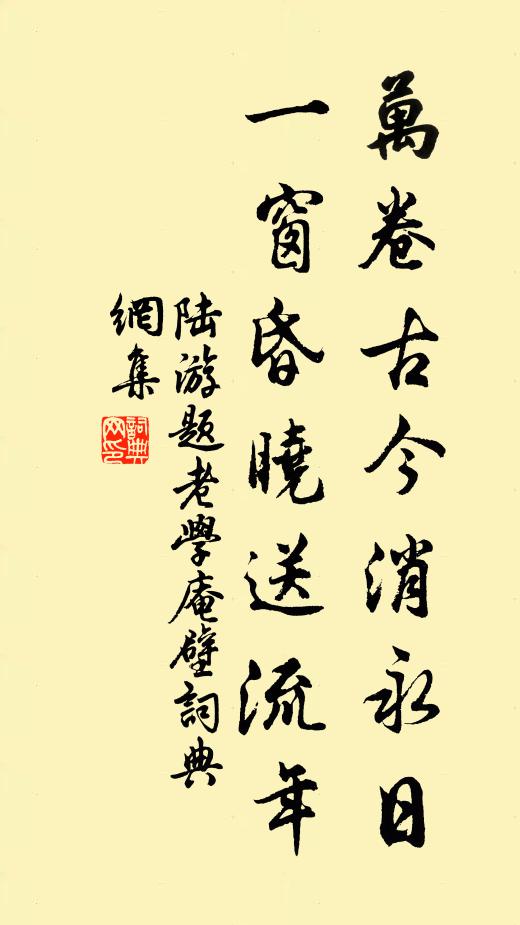 萬卷古今消永日
一窗昏曉送流年
陆游題老學庵壁詞典
網集
詞典
网印